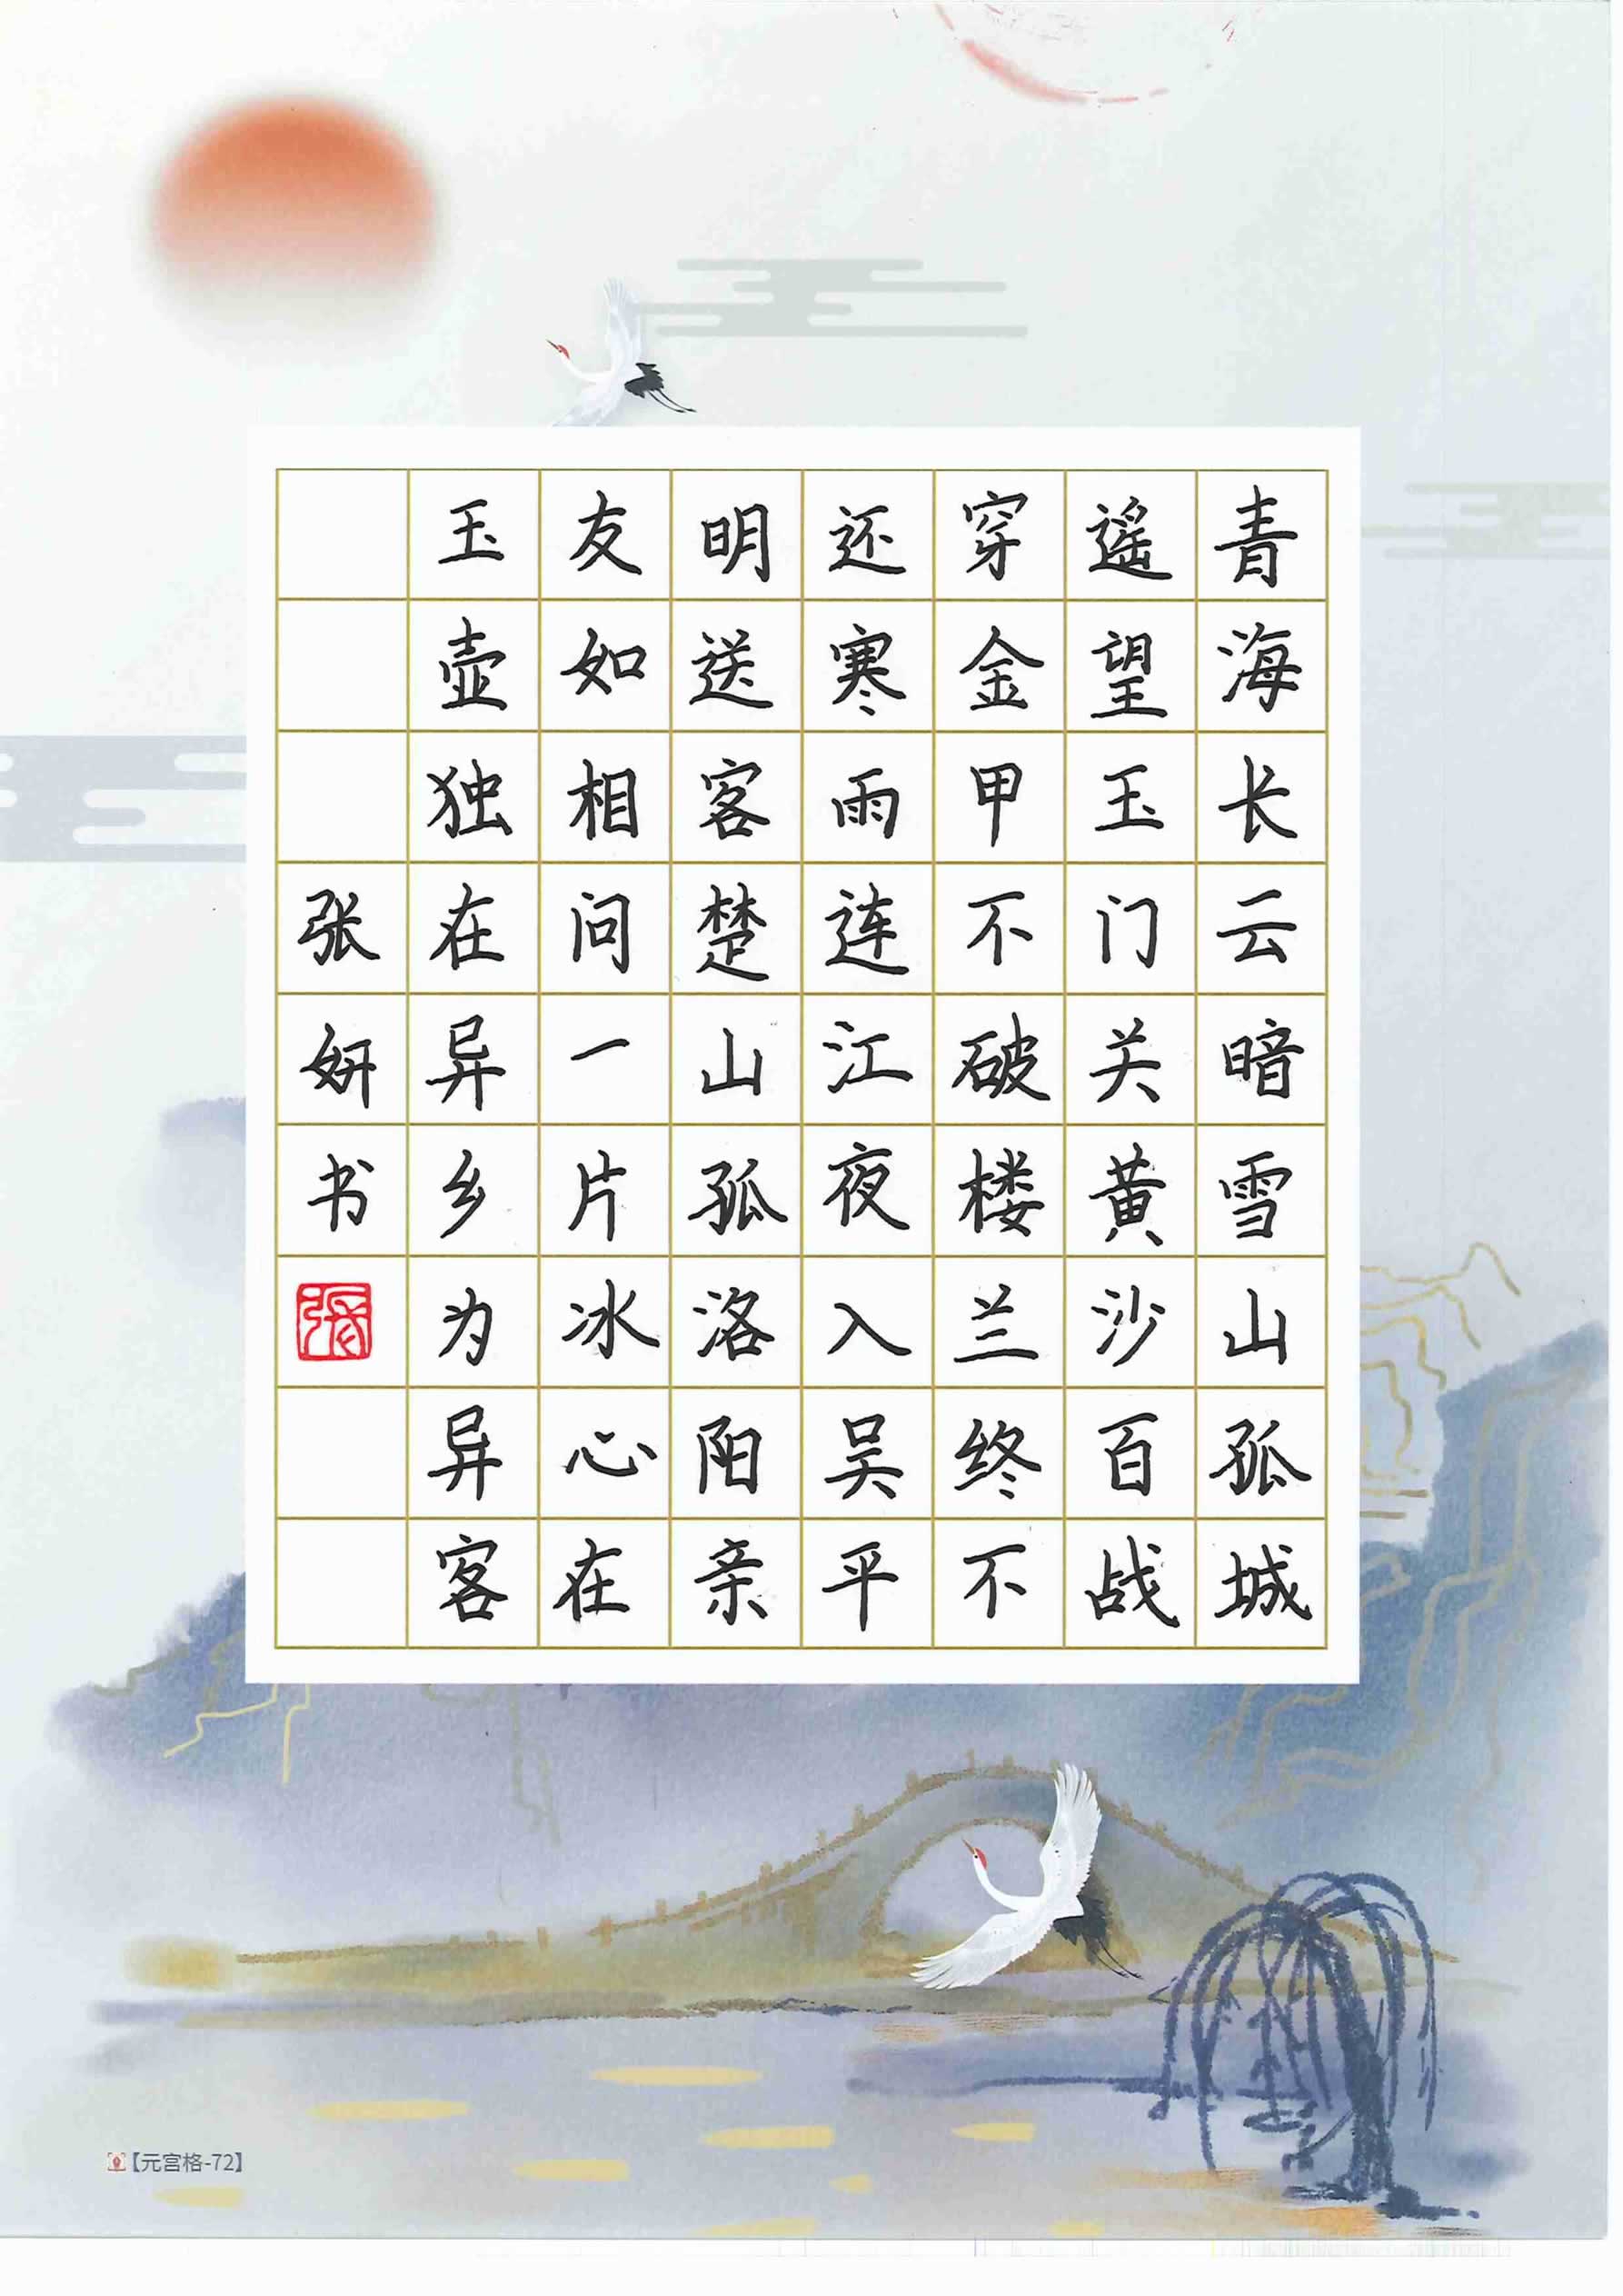 青海长云暗雪山孤城
遥望玉门关黄沙百战
穿金甲不破楼兰终不
还寒雨连江夜入吴平
明送客楚山孤洛阳亲
友如相问一片冰心在
玉壶独在异乡为异客
张妍书
張
【元宫格-72】